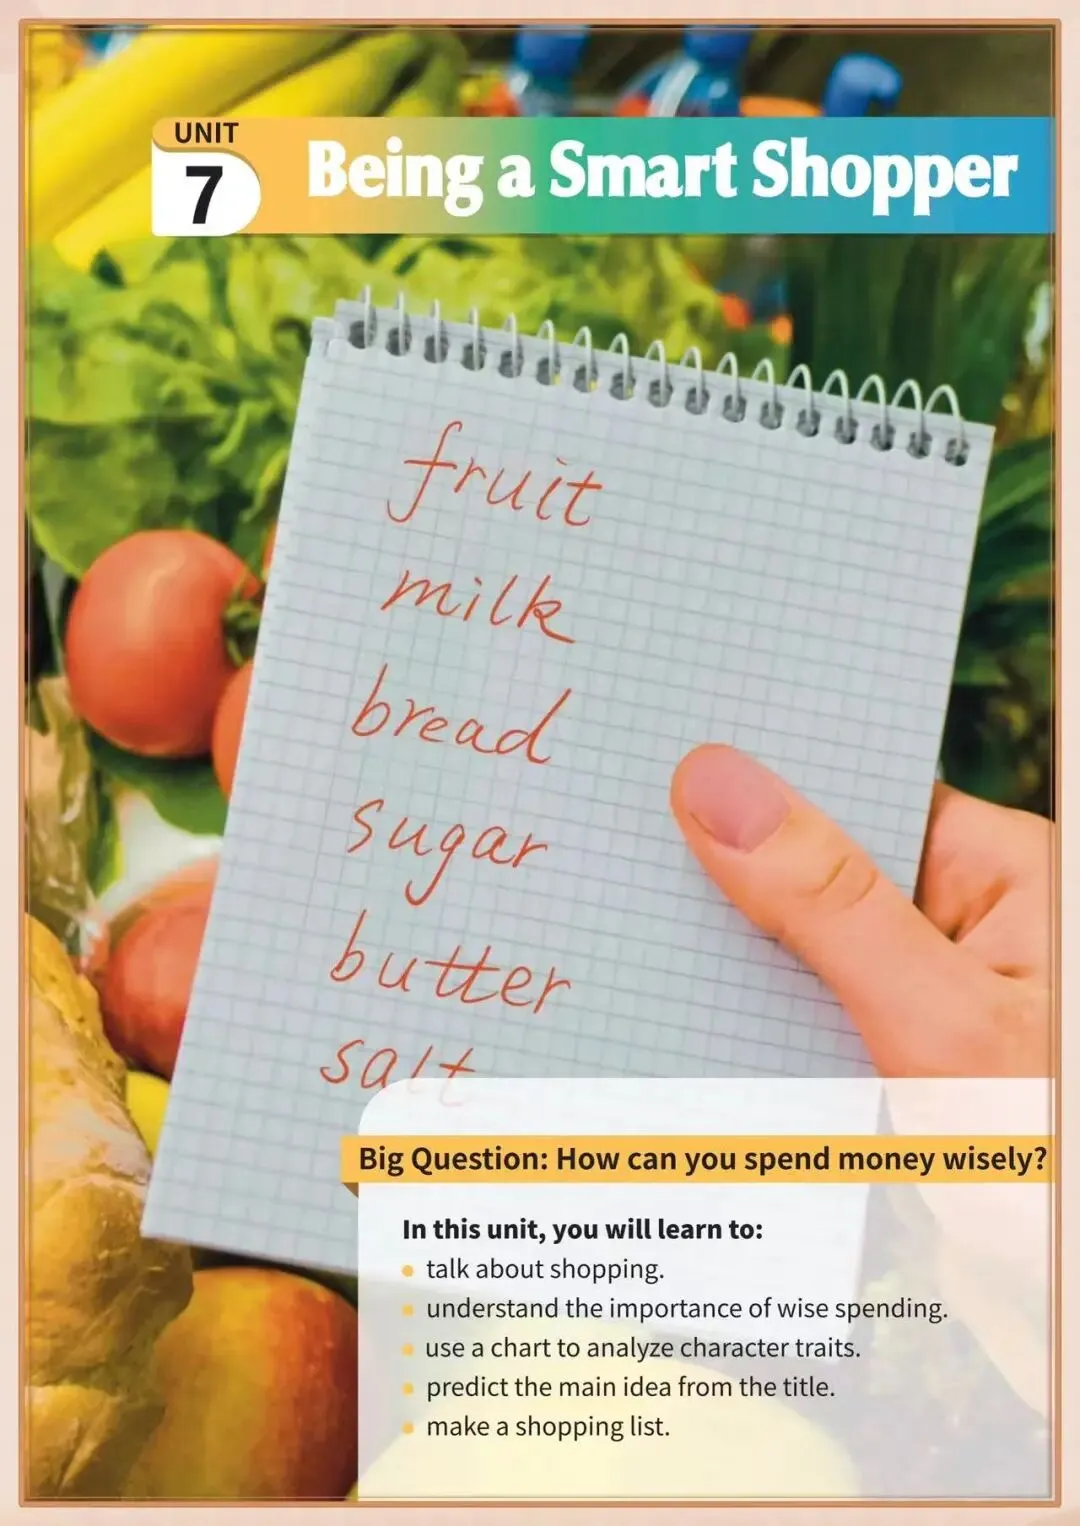 UNIT
7
Being a Smart Shopper
fruit
milk
bread
sugar
butter
salt
Big Question: How can you spend money wisely?
In this unit, you will learn to:
talk about shopping.
understand the importance of wise spending.
use a chart to analyze character traits.
predict the main idea from the title.
make a shopping list.